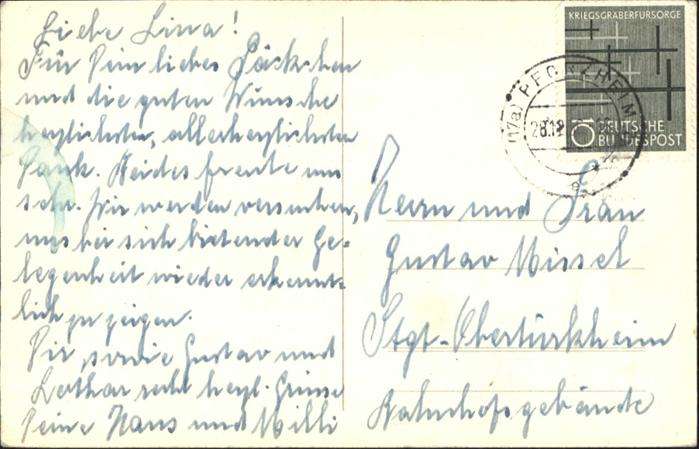 Liebe Lina!
Für Dein liebes Päckchen
und die guten Wünsche
herzlichsten, allerherzlichsten
Dank. Beides freute uns
sehr. Wir werden versuchen,
uns bei sich bietender Ge-
legenheit wieder erkennt-
lich zu zeigen.
Dir, sowie Gustav und
Lothar recht herzl. Grüsse
Deine Hans und Milli
KRIEGSGRÄBERFÜRSORGE
5 DEUTSCHE
BUNDESPOST
(17a) PFORZHEIM
28.12
Herrn und Frau
Gustav Missel
Stgt-Obertürkheim
Bahnhofsgebäude